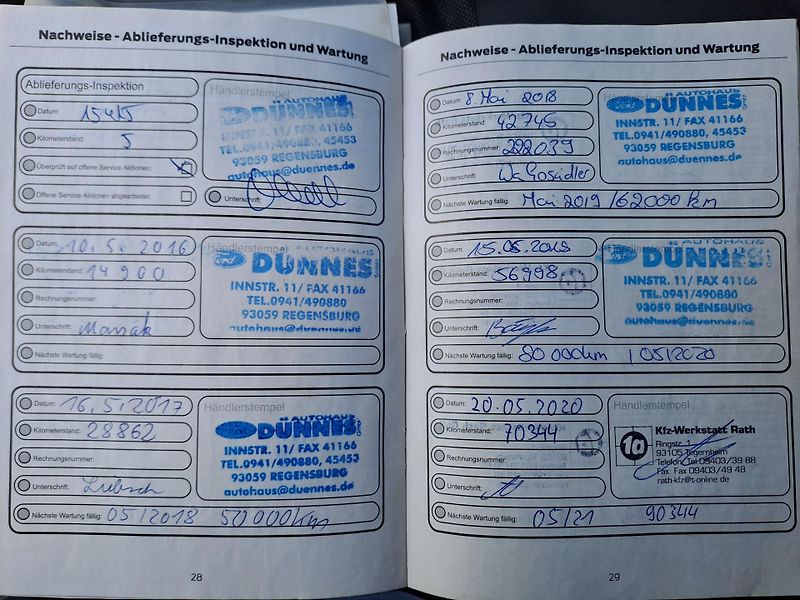 Nachweise - Ablieferungs-Inspektion und Wartung
Ablieferungs-Inspektion
Datum:
Kilometerstand: 5
Überprüft auf offene Service Aktionen:
Offene Service Aktionen abgearbeitet:
Händlerstempel
AUTOHAUS
Ford DÜNNES
INNSTR. 11/ FAX 41166
TEL.0941/490880, 45453
93059 REGENSBURG
autohaus@duennes.de
Unterschrift:
Datum: 10.5.2016
Kilometerstand: 14900
Rechnungsnummer:
Unterschrift:
Nächste Wartung fällig:
Händlerstempel
AUTOHAUS
Ford DÜNNES
INNSTR. 11/ FAX 41166
TEL.0941/490880
93059 REGENSBURG
autohaus@duennes.de
Datum: 16.5.2017
Kilometerstand: 28862
Rechnungsnummer:
Unterschrift:
Nächste Wartung fällig: 05/2018 50000km
Händlerstempel
AUTOHAUS
DÜNNES
INNSTR. 11/ FAX 41166
TEL.0941/490880, 45453
93059 REGENSBURG
autohaus@duennes.de
28
Nachweise - Ablieferungs-Inspektion und Wartung
Datum: 8. Mai 2018
Kilometerstand: 42745
Rechnungsnummer: 222039
Unterschrift:
Nächste Wartung fällig: Mai 2019 / 62000 km
AUTOHAUS
Ford DÜNNES
INNSTR. 11/ FAX 41166
TEL.0941/490880, 45453
93059 REGENSBURG
autohaus@duennes.de
Datum: 15.05.2019
Kilometerstand: 56998
Rechnungsnummer:
Unterschrift:
Nächste Wartung fällig: 80 000km / 05/2020
Händlerstempel
AUTOHAUS
Ford DÜNNES
INNSTR. 11/ FAX 41166
TEL.0941/490880
93059 REGENSBURG
autohaus@duennes.de
Datum: 20.05.2020
Kilometerstand: 70344
Rechnungsnummer:
Unterschrift:
Nächste Wartung fällig: 05/21 90344
Händlerstempel
Kfz-Werkstatt Rath
Ringstr. 1
93105 Tegernheim
Telefon Tel 09403/39 88
Fax Fax 09403/49 48
rath-kfz@t-online.de
29